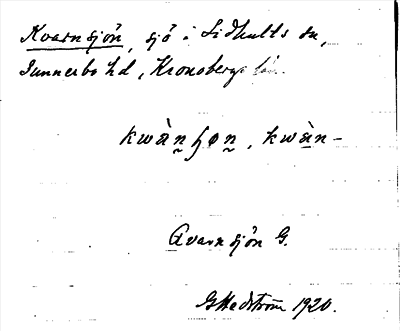 Kvarnsjön, sjö i Lidhults sn,
Sunnerbo hd, Kronobergs län.
kwàn̰ɧøn̰, kwàn-
Qvarnsjön G.
GHedström 1920.